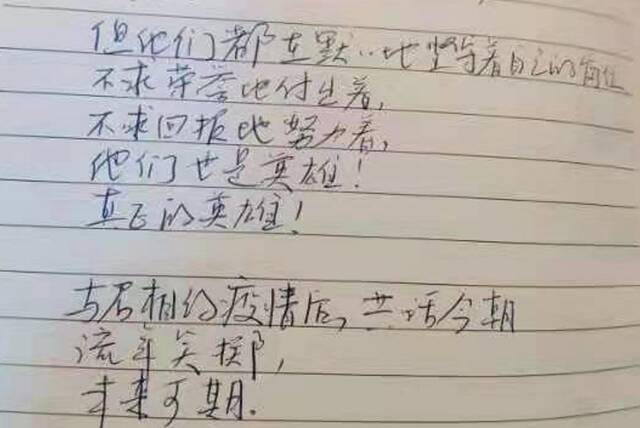 但他们都在默默地坚守着自己的岗位
不求荣誉地付出着,
不求回报地努力着,
他们也是英雄!
真正的英雄!
与君相约疫情后,共话今朝
流年笑掷,
未来可期.